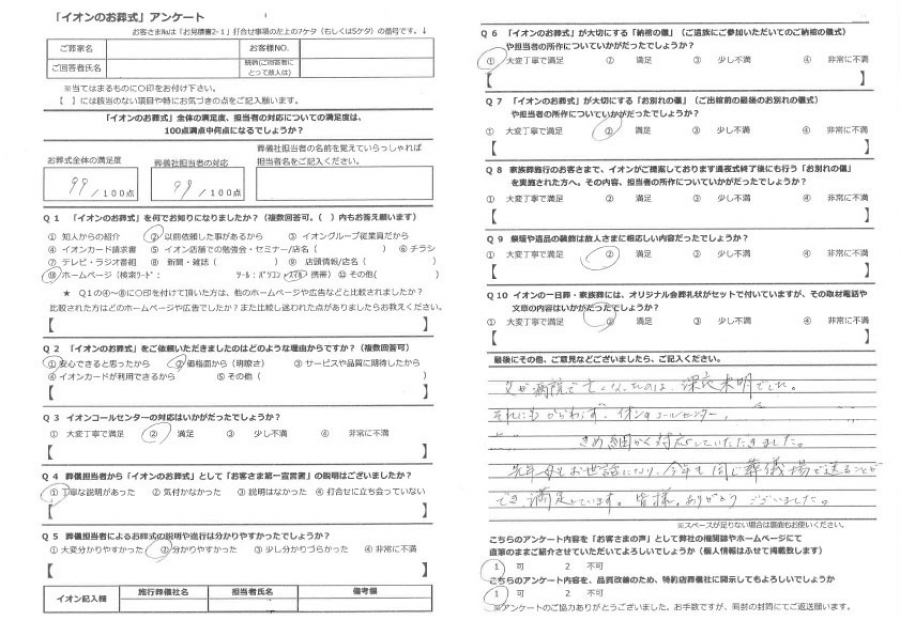 「イオンのお葬式」アンケート
お客さまNoは「お見積書2-1」打合せ事項の左上の7ケタ（もしくは5ケタ）の番号です。↓
ご葬家名
お客様NO.
ご回答者氏名
続柄(ご回答者にとって故人は)
※当てはまるものに○印をお付け下さい。
【 】には該当のない項目や特にお気づきの点をご記入願います。
「イオンのお葬式」全体の満足度、担当者の対応についての満足度は、
100点満点中何点になるでしょうか？
お葬式全体の満足度
葬儀社担当者の対応
葬儀社担当者の名前を覚えていらっしゃれば
担当者名をご記入ください。
99/100点
99/100点
Q1 「イオンのお葬式」を何でお知りになりましたか？（複数回答可。（ ）内もお答え願います）
① 知人からの紹介 ② 以前依頼した事があるから ③ イオングループ従業員だから
④ イオンカード請求書 ⑤ イオン店舗での勉強会・セミナー/店名（ ） ⑥ チラシ
⑦ テレビ・ラジオ番組 ⑧ 新聞・雑誌（ ） ⑨ 店頭情報/店名（ ）
⑩ ホームページ（検索ﾜｰﾄﾞ： ﾂｰﾙ：ﾊﾟｿｺﾝ ｽﾏﾎ 携帯） ⑫ その他( )
★ Q1の④～⑧に○印を付けて頂いた方は、他のホームページや広告などと比較されましたか？
比較された方はどのホームページや広告でしたか？また比較し迷われた点がありましたらお教えください。
【 】
Q2 「イオンのお葬式」をご依頼いただきましたのはどのような理由からですか？（複数回答可）
① 安心できると思ったから ② 価格面から（明瞭さ） ③ サービスや品質に期待したから
④ イオンカードが利用できるから ⑤ その他（ ）
【 】
Q3 イオンコールセンターの対応はいかがだったでしょうか？
① 大変丁寧で満足 ② 満足 ③ 少し不満 ④ 非常に不満
【 】
Q4 葬儀担当者から「イオンのお葬式」として「お客さま第一宣言書」の説明はございましたか？
① 丁寧な説明があった ② 気付かなかった ③ 説明はなかった ④ 打合せに立ち会っていない
【 】
Q5 葬儀担当者によるお葬式の説明や進行は分かりやすかったでしょうか？
① 大変分かりやすかった ② 分かりやすかった ③ 少し分かりづらかった ④ 非常に不満
【 】
イオン記入欄 施行葬儀社名 担当者氏名 備考欄
Q6 「イオンのお葬式」が大切にする「納棺の儀」（ご遺族にご参加いただいてのご納棺の儀式）
や担当者の所作についていかがだったでしょうか？
① 大変丁寧で満足 ② 満足 ③ 少し不満 ④ 非常に不満
【 】
Q7 「イオンのお葬式」が大切にする「お別れの儀」（ご出棺前の最後のお別れの儀式）
や担当者の所作についていかがだったでしょうか？
① 大変丁寧で満足 ② 満足 ③ 少し不満 ④ 非常に不満
【 】
Q8 家族葬施行のお客さまで、イオンがご提案しております通夜式終了後にも行う「お別れの儀」
を実施された方へ。その内容、担当者の所作についていかがだったでしょうか？
① 大変丁寧で満足 ② 満足 ③ 少し不満 ④ 非常に不満
【 】
Q9 祭壇や遺品の装飾は故人さまに相応しい内容だったでしょうか？
① 大変丁寧で満足 ② 満足 ③ 少し不満 ④ 非常に不満
【 】
Q10 イオンの一日葬・家族葬には、オリジナル会葬礼状がセットで付いていますが、その取材電話や
文章の内容はいかがだったでしょうか？
① 大変丁寧で満足 ② 満足 ③ 少し不満 ④ 非常に不満
【 】
最後にその他、ご意見などございましたら、ご記入ください。
父が病院で亡くなったのは、深夜未明でした。
それにもかかわらず、イオンのコールセンター、
きめ細かく対応していただきました。
先年母もお世話になり、今年も同じ葬儀場で送ることが
でき、満足しています。皆様、ありがとうございました。
※スペースが足りない場合は裏面もお使いください。
こちらのアンケート内容を「お客さまの声」として弊社の機関誌やホームページにて
直筆のままご紹介させていただいてよろしいでしょうか（個人情報はふせて掲載致します）
1 可 2 不可
こちらのアンケート内容を、品質改善のため、特約店葬儀社に開示してもよろしいでしょうか
1 可 2 不可
※アンケートのご協力ありがとうございました。お手数ですが、同封の封筒にてご返送願います。